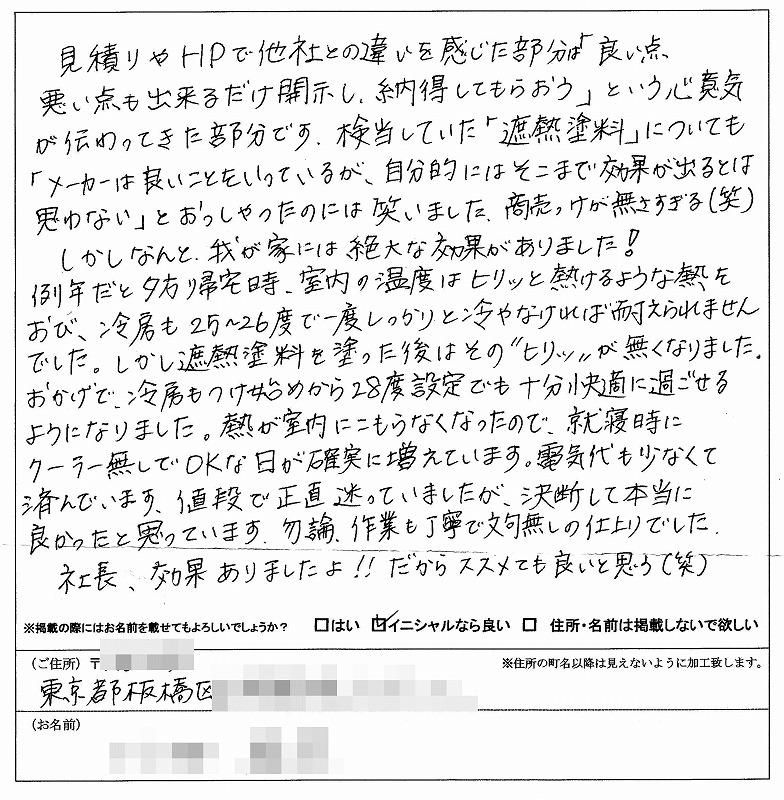 見積りやHPで他社との違いを感じた部分は「良い点、
悪い点も出来るだけ開示し、納得してもらおう」という心意気
が伝わってきた部分です。検当していた「遮熱塗料」についても
「メーカーは良いことをいっているが、自分的にはそこまで効果が出るとは
思わない」とおっしゃったのには笑いました。商売っけが無さすぎる(笑)
しかしなんと、我が家には絶大な効果がありました!
例年だと夕方帰宅時、室内の温度はヒリッと熱けるような熱を
おび、冷房も25~26度で一度しっかりと冷やなければ耐えられません
でした。しかし遮熱塗料を塗った後はその"ヒリッ"が無くなりました。
おかげで、冷房もつけ始めから28度設定でも十分快適に過ごせる
ようになりました。熱が室内にこもらなくなったので、就寝時に
クーラー無しでOKな日が確実に増えています。電気代も少なくて
済んでいます。値段で正直迷っていましたが、決断して本当に
良かったと思っています。勿論、作業も丁寧で文句無しの仕上りでした。
社長、効果ありましたよ!!だからススメても良いと思う(笑)
※掲載の際にはお名前を載せてもよろしいでしょうか? □はい ☑イニシャルなら良い □ 住所・名前は掲載しないで欲しい
(ご住所) 〒 ※住所の町名以降は見えないように加工致します。
東京都板橋区
(お名前)